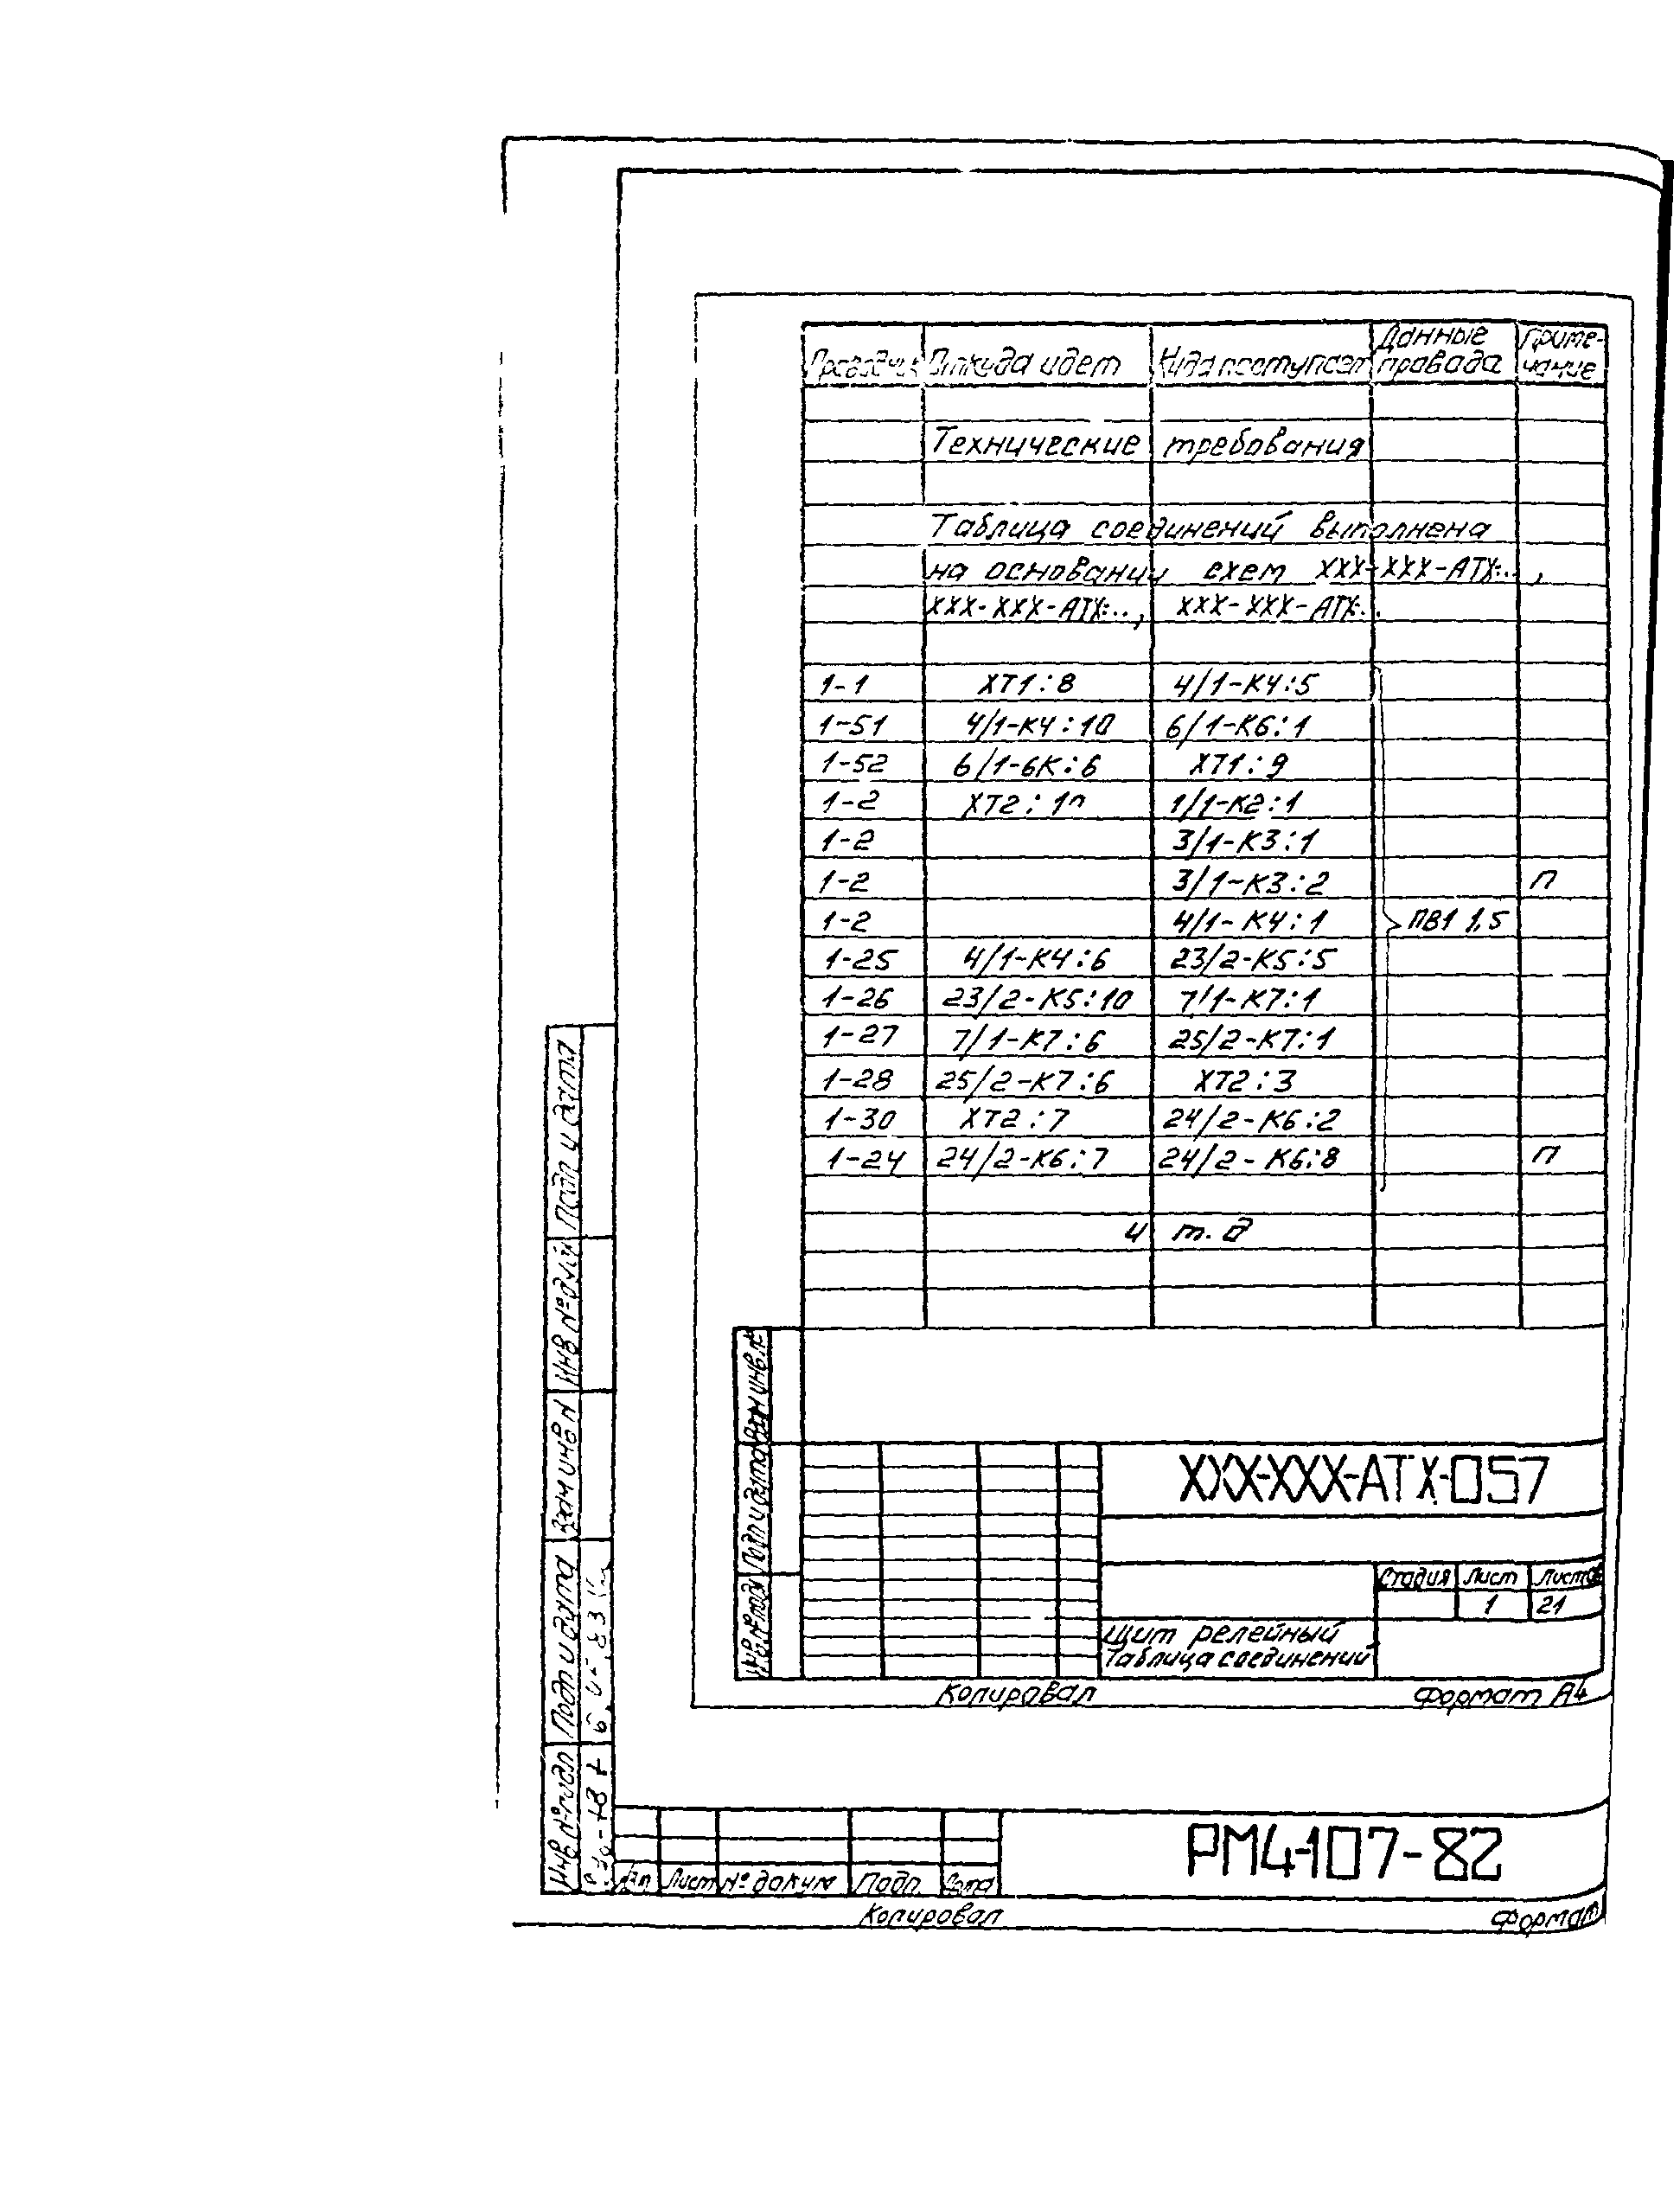 Проводник Откуда идет Куда поступает Данные провода Примечание
Технические требования
Таблица соединений выполнена
на основании схем XXX-XXX-АТХ...,
XXX-XXX-АТХ..., XXX-XXX-АТХ..
1-1 XT1:8 4/1-К4:5
1-51 4/1-К4:10 6/1-К6:1
1-52 6/1-6К:6 XT1:9
1-2 XT2: 1/1-К2:1
1-2 3/1-К3:1
1-2 3/1-К3:2 П
1-2 4/1-К4:1 ПВ1 1,5
1-25 4/1-К4:6 23/2-К5:5
1-26 23/2-К5:10 7/1-К7:1
1-27 7/1-К7:6 25/2-К7:1
1-28 25/2-К7:6 XT2:3
1-30 XT2:7 24/2-К6:2
1-24 24/2-К6:7 24/2-К6:8 П
и т.д
Взам инв.№
Подп и дата
Инв.№ подл
XXX-XXX-АТХ-057
Стадия Лист Листов
1 21
Щит релейный
Таблица соединений
Копировал Формат А4
Подп и дата
Инв №дубл
Взам инв №
Подп и дата
Инв №подл
Изм Лист № докум Подп. Дата
РМ4-107-82
Копировал Формат